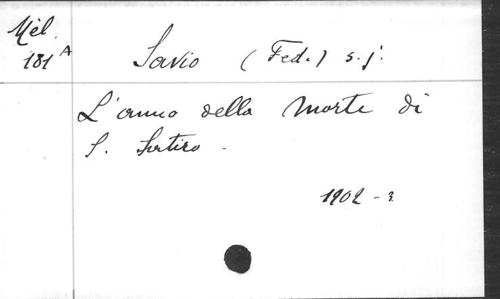 Mél.
181 A
Savio (Fed.) s.j.
L'anno della morte di
S. Satiro.
1902 - 3